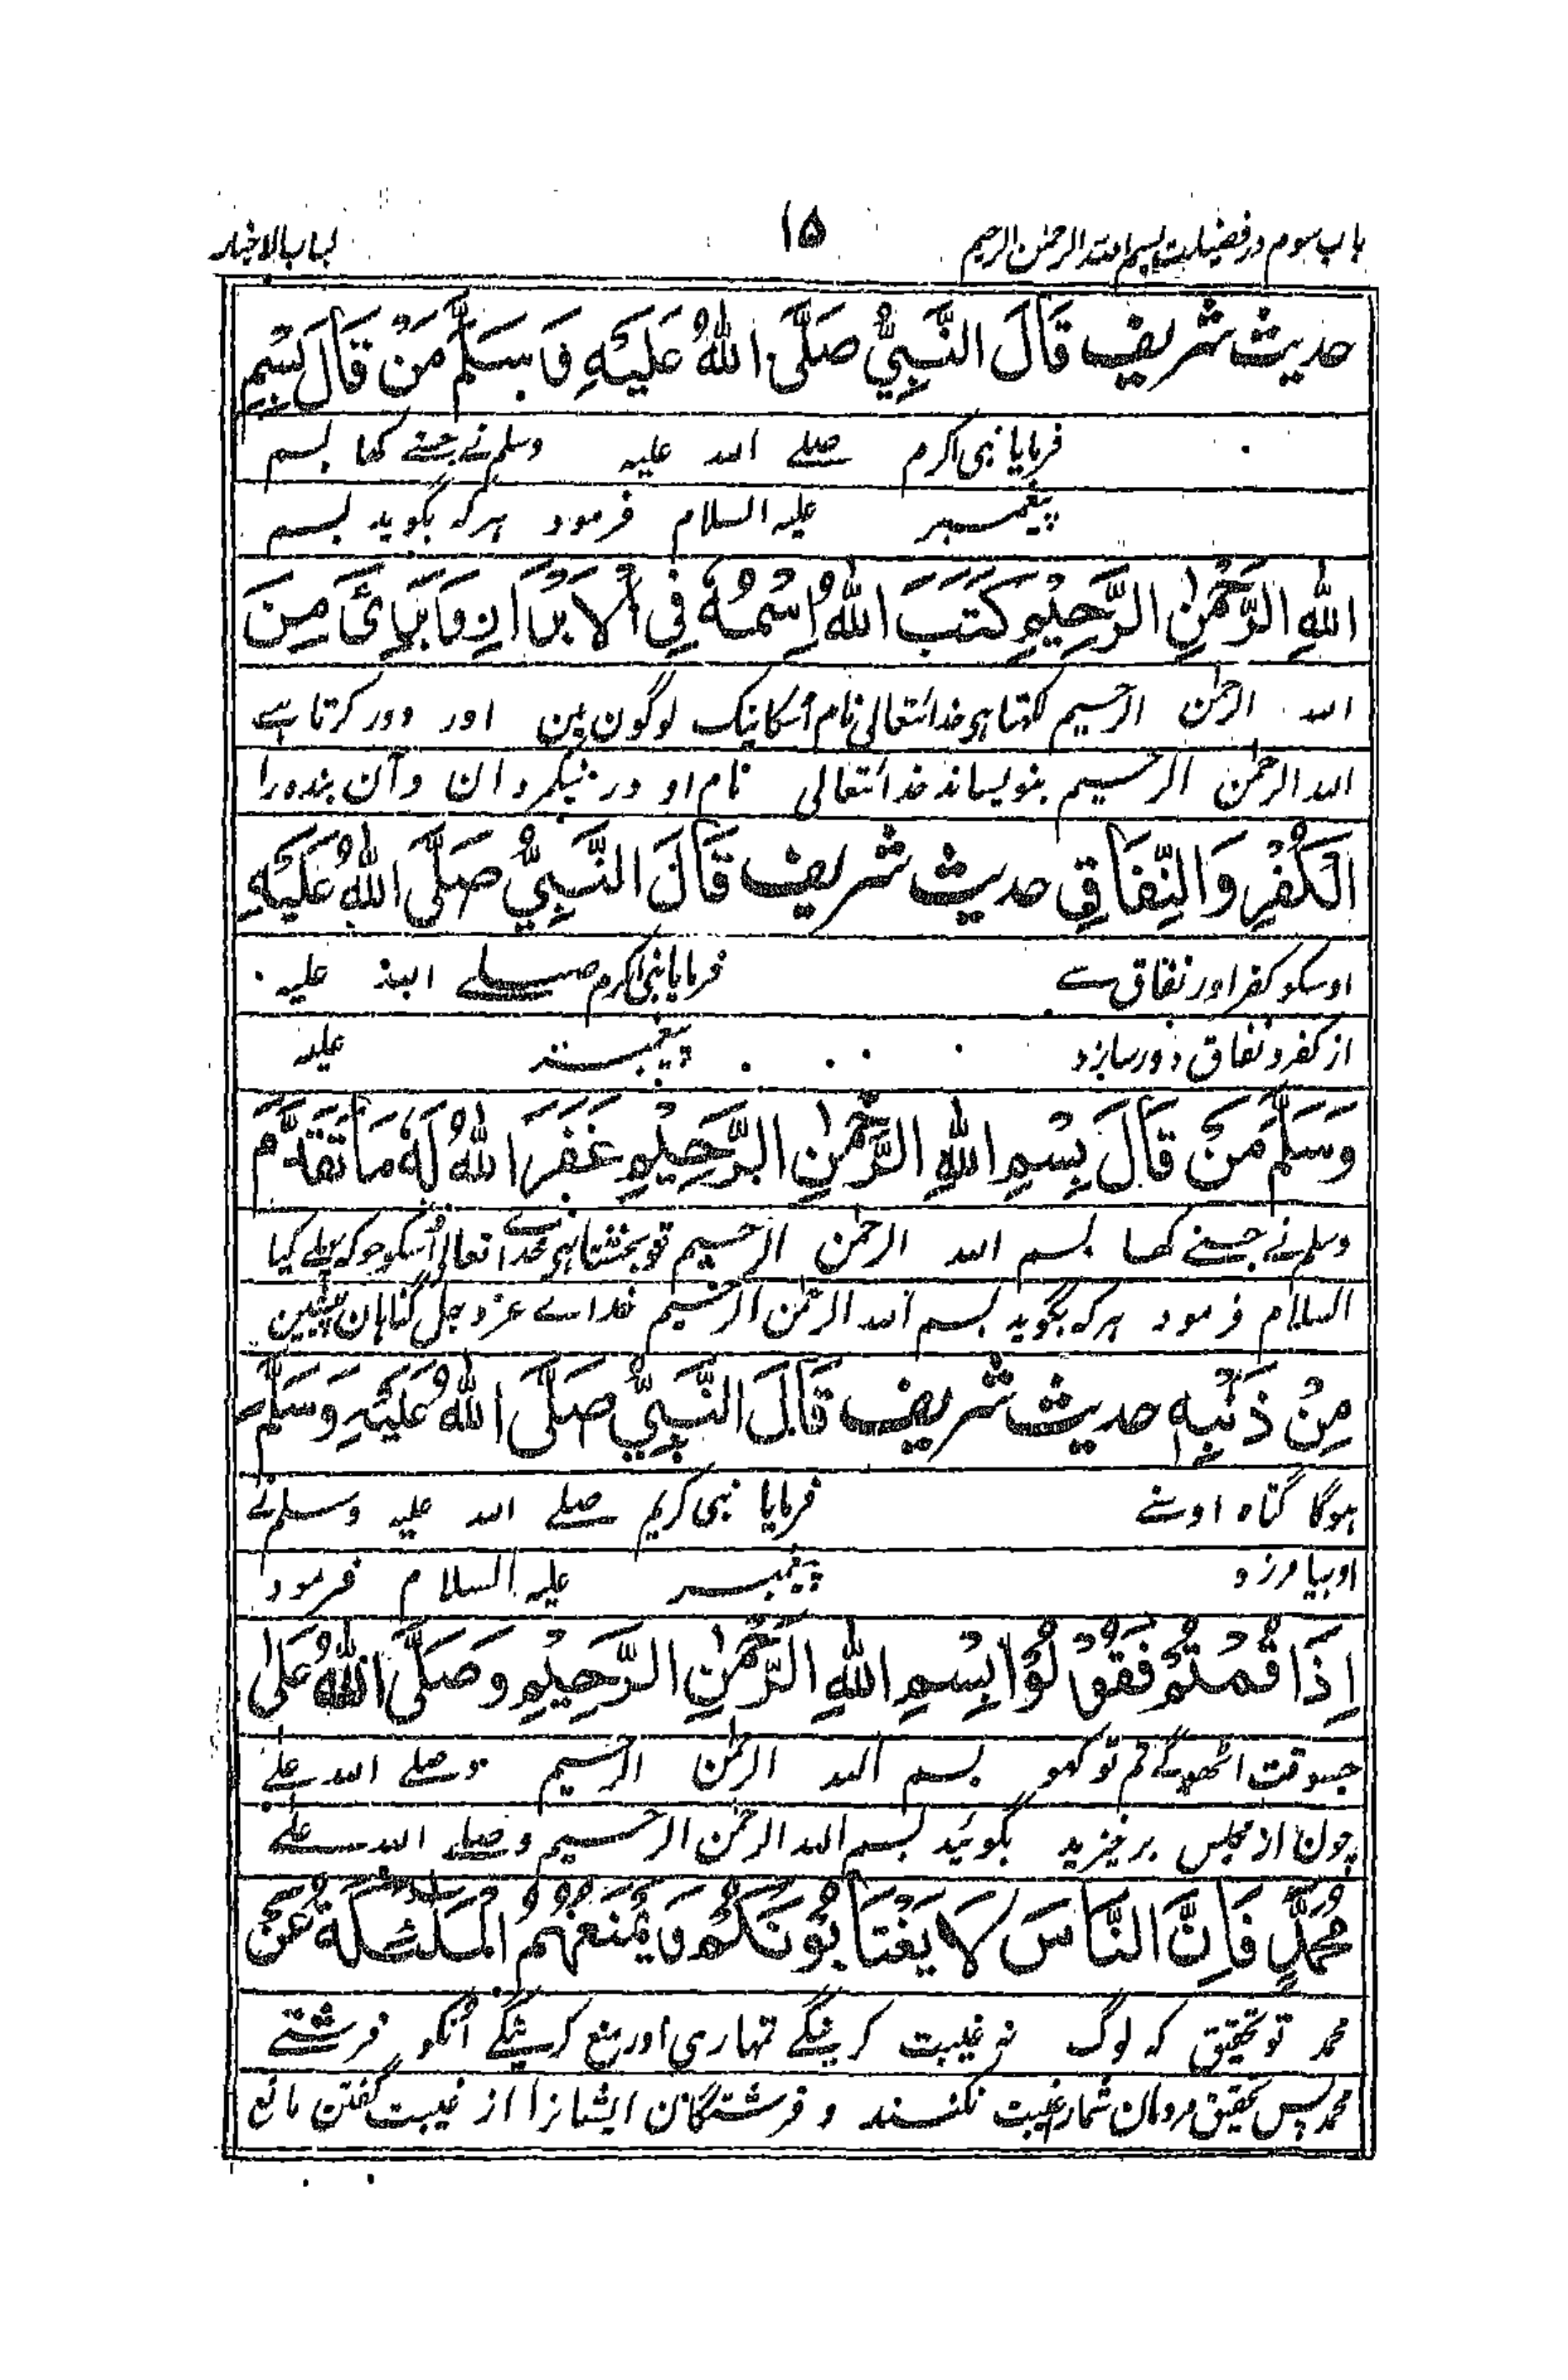 باب سوم در فضیلت بسم الله الرحمن الرحیم ۱۵ لباب الاخبار
حدیث شریف قَالَ النَّبِيُّ صَلَّى اللهُ عَلَيْهِ وَسَلَّمَ مَنْ قَالَ بِسْمِ
فرمایا نبی اکرم صلے اللہ علیہ وسلم نے جسنے کہا بسم
پیغمبر علیہ السلام فرمود ہر کہ بگوید بسم
اللهِ الرَّحْمٰنِ الرَّحِيْمِ كَتَبَ اللهُ اِسْمُهٗ فِي الْاَبْرَارِ وَبَرَّائً مِنَ
اللہ الرحمٰن الرحیم لکھتا ہی خدا تتعالی نام اسکا نیک لوگون مین اور دور کرتا ہے
اللہ الرحمٰن الرحیم بنویساند خدا تتعالی نام او در نیکردان وآن بندہ را
الْكُفْرِ وَالنِّفَاقِ حدیث شریف قَالَ النَّبِيُّ صَلَّى اللهُ عَلَيْهِ
اوسکو کفر اور نفاق سے فرمایا نبی اکرم صلے اللہ علیہ
از کفر و نفاق دور سازد پیغمبر علیہ
وَسَلَّمَ مَنْ قَالَ بِسْمِ اللهِ الرَّحْمٰنِ الرَّحِيْمِ غَفَرَ اللهُ لَهٗ مَا تَقَدَّمَ
وسلم نے جسنے کہا بسم اللہ الرحمٰن الرحیم تو بخشتا ہی خدا تعالی اُسکو جو کہ پہلے کیا
السلام فرمود ہر کہ بگوید بسم اللہ الرحمٰن الرحیم خداے عز وجل گناہان پیشین
مِنْ ذَنْبِهٖ حدیث شریف قَالَ النَّبِيُّ صَلَّى اللهُ عَلَيْهِ وَسَلَّمَ
ہوگا گناہ اوسنے فرمایا نبی کریم صلے اللہ علیہ وسلم نے
او بیامرزد پیغمبر علیہ السلام فرمود
اِذَا قُمْتُمْ فَقُوْلُوْا بِسْمِ اللهِ الرَّحْمٰنِ الرَّحِيْمِ وَصَلَّى اللهُ عَلٰى
جسوقت اٹھوگے تم تو کہو بسم اللہ الرحمٰن الرحیم وصلے اللہ علے
چون از مجلس برخیزید بگوئید بسم اللہ الرحمٰن الرحیم وصلے اللہ علے
مُحَمَّدٍ فَاِنَّ النَّاسَ لَا يَغْتَابُوْنَكُمْ وَيَمْنَعُهُمُ الْمَلٰئِكَةُ عَنْ
محمد تو تحقیق کہ لوگ نہ غیبت کرینگے تمہاری اور منع کرینگے اُنکو فرشتے
محمد پس تحقیق مردمان شمارا غیبت نکنند و فرشتگان ایشانرا از غیبت گفتن مانع